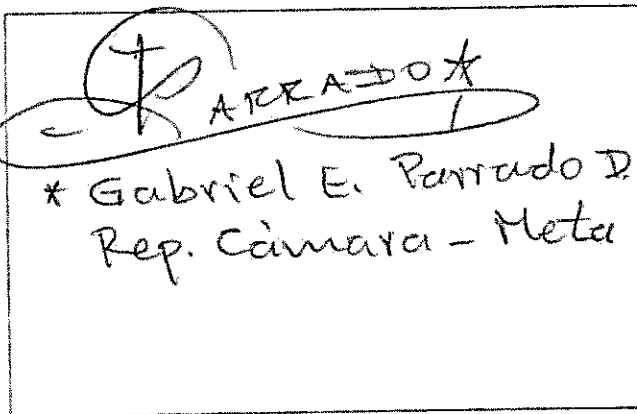 PARRADO*
* Gabriel E. Parrado D.
Rep. Cámara - Meta